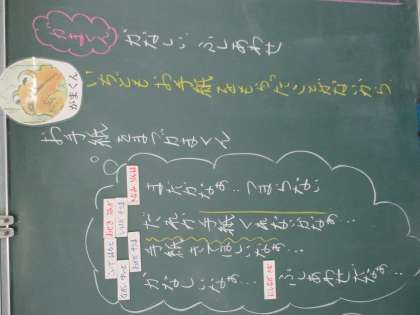 がまくん
かなしい ふしあわせ
がまくん
いちどもお手紙をもらったことがないから
お手紙をまつがまくん
まだかなあ‥つまらない
だれか手紙くれないかなあ‥
手紙きてほしいなあ‥
かなしいなあ‥ ふしあわせだなあ‥